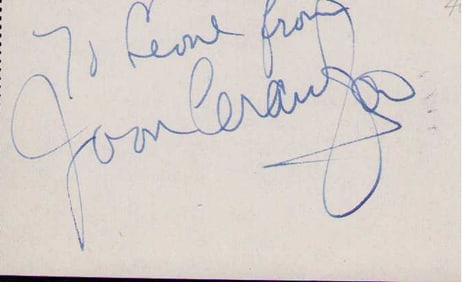 To Leone from
Joan Crawford